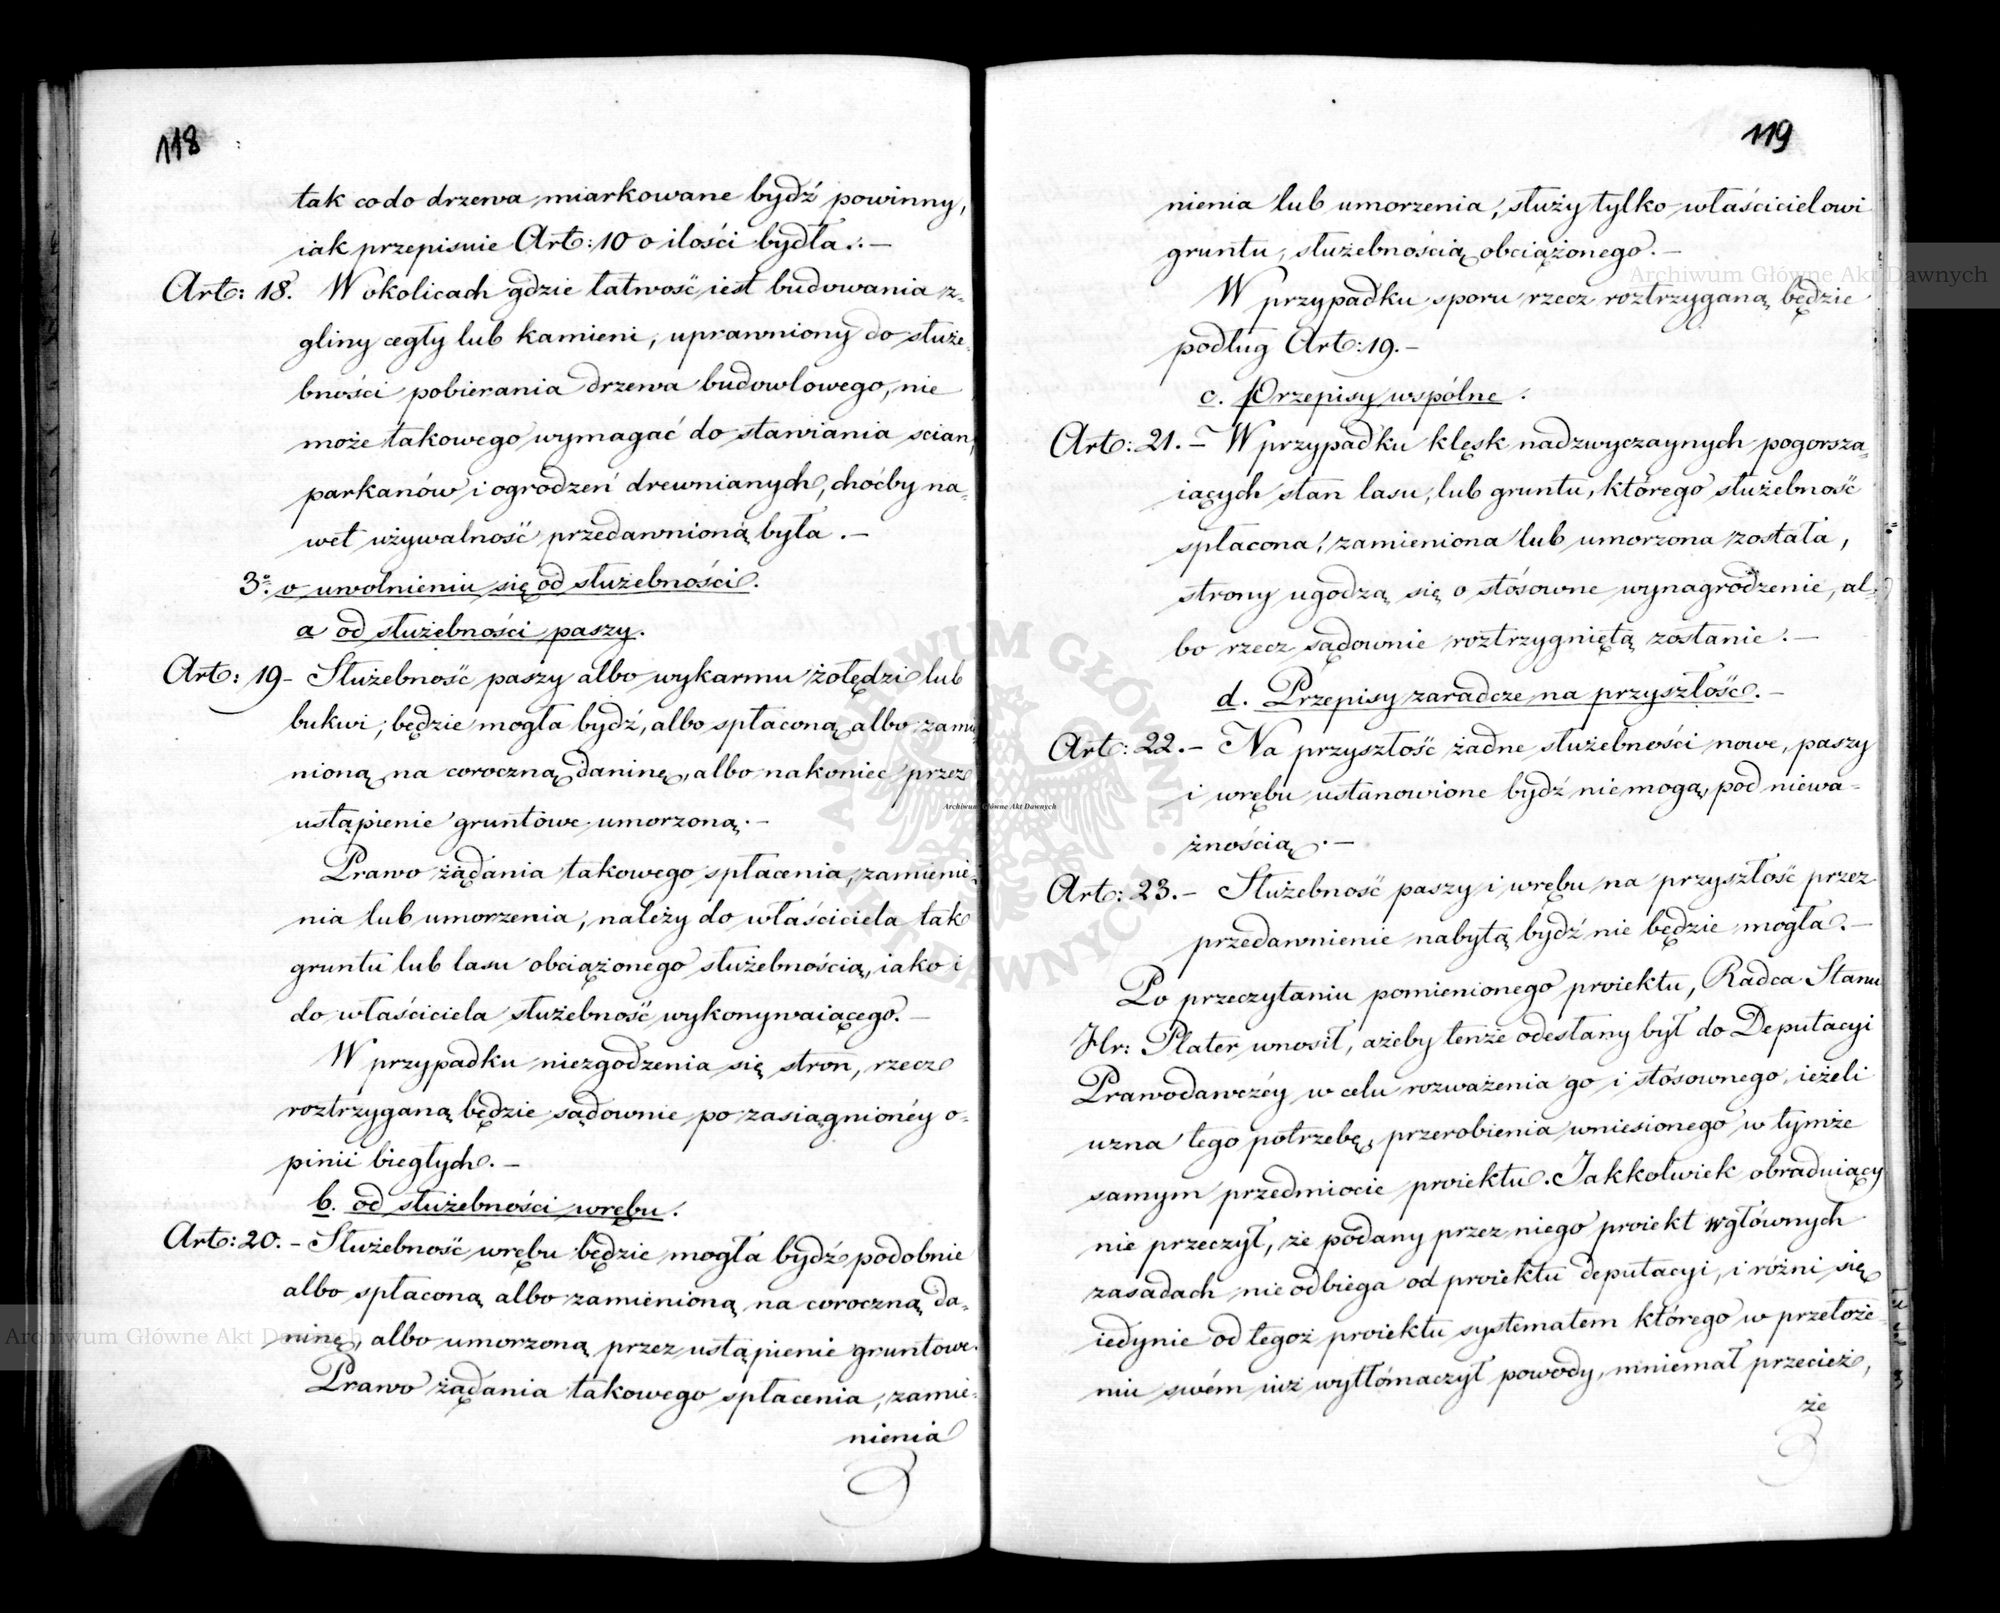 118
tak codo drzewa miarkowane bydź powinny,
iak przepisuie Art: 10 o ilości bydła. —
Art: 18. W okolicach gdzie łatwość iest budowania z
gliny cegły lub kamieni, uprawniony do służe=
bności pobierania drzewa budowlowego, nie
może takowego wymagać do stawiania scian,
parkanów i ogrodzeń drewnianych, choćby na=
wet używalność przedawnioną była. —
3º o uwolnieniu się od służebności.
a od służebności paszy.
Art: 19 – Służebność paszy albo wykarmu żołędzi lub
bukwi, będzie mogła bydź, albo spłaconą, albo zamie
nioną na coroczną daninę, albo nakoniec przez
ustąpienie gruntowe umorzoną. —
Prawo żądania takowego spłacenia, zamienie=
nia lub umorzenia, należy do właściciela tak
gruntu lub lasu obciążonego służebnością, iako i
do właściciela służebność wykonywaiącego. —
W przypadku niezgodzenia się stron, rzecz
roztrzyganą będzie sądownie po zasiągnionéy o=
pinii biegłych. —
b. od służebności wrębu.
Art: 20. – Służebność wrębu będzie mogła bydź podobnie
albo spłaconą albo zamienioną na coroczną da=
ninę, albo umorzoną przez ustąpienie gruntowe.
Prawo żądania takowego spłacenia, zamie=
nienia
119
nienia lub umorzenia, służy tylko właścicielowi
gruntu, służebnością obciążonego. —
W przypadku sporu rzecz roztrzyganą będzie
podług Art: 19. —
c. Przepisy wspólne.
Art: 21. – W przypadku klęsk nadzwyczaynych pogorsza=
iących stan lasu, lub gruntu, którego służebność
spłacona, zamieniona lub umorzona została,
strony ugodzą się o stósowne wynagrodzenie, al=
bo rzecz sądownie roztrzygniętą zostanie. —
d. Przepisy zaradcze na przyszłość. —
Art: 22. – Na przyszłość żadne służebności nowe, paszy
i wrębu ustanowione bydź niemogą, pod niewa=
żnością. —
Art: 23. – Służebność paszy i wrębu na przyszłość przez
przedawnienie nabytą bydź nie będzie mogła. —
Po przeczytaniu pomienionego proiektu, Radca Stanu
Hr: Plater wnosił, ażeby tenże odesłany był do Deputacyi
Prawodawczéy w celu rozważenia go i stósownego, ieżeli
uzna tego potrzebę, przerobienia wniesionego w tymże
samym przedmiocie proiektu. Jakkolwiek obraduiący
nie przeczył, że podany przez niego proiekt w głównych
zasadach nie odbiega od proiektu deputacyi, i różni się
iedynie od tegoż proiektu systematem którego w przełoże=
niu swém iuż wytłómaczył powody, mniemał przecież,
że
Archiwum Główne Akt Dawnych
Archiwum Główne Akt Dawnych
Archiwum Główne Akt Dawnych
ARCHIWUM GŁÓWNE AKT DAWNYCH